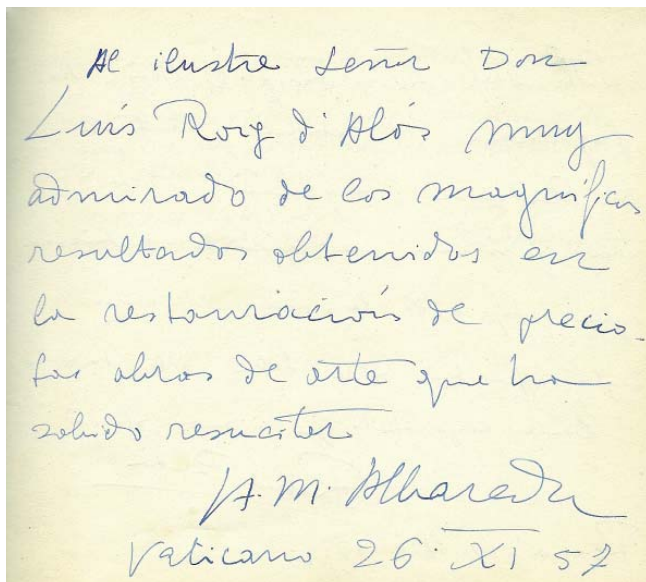 Al ilustre Señor Don
Luís Roig d'Alós muy
admirado de los magníficos
resultados obtenidos en
la restauración de precio-
sas obras de arte que ha
sabido resucitar
A. M. Albareda
Vaticano 26. XI 57